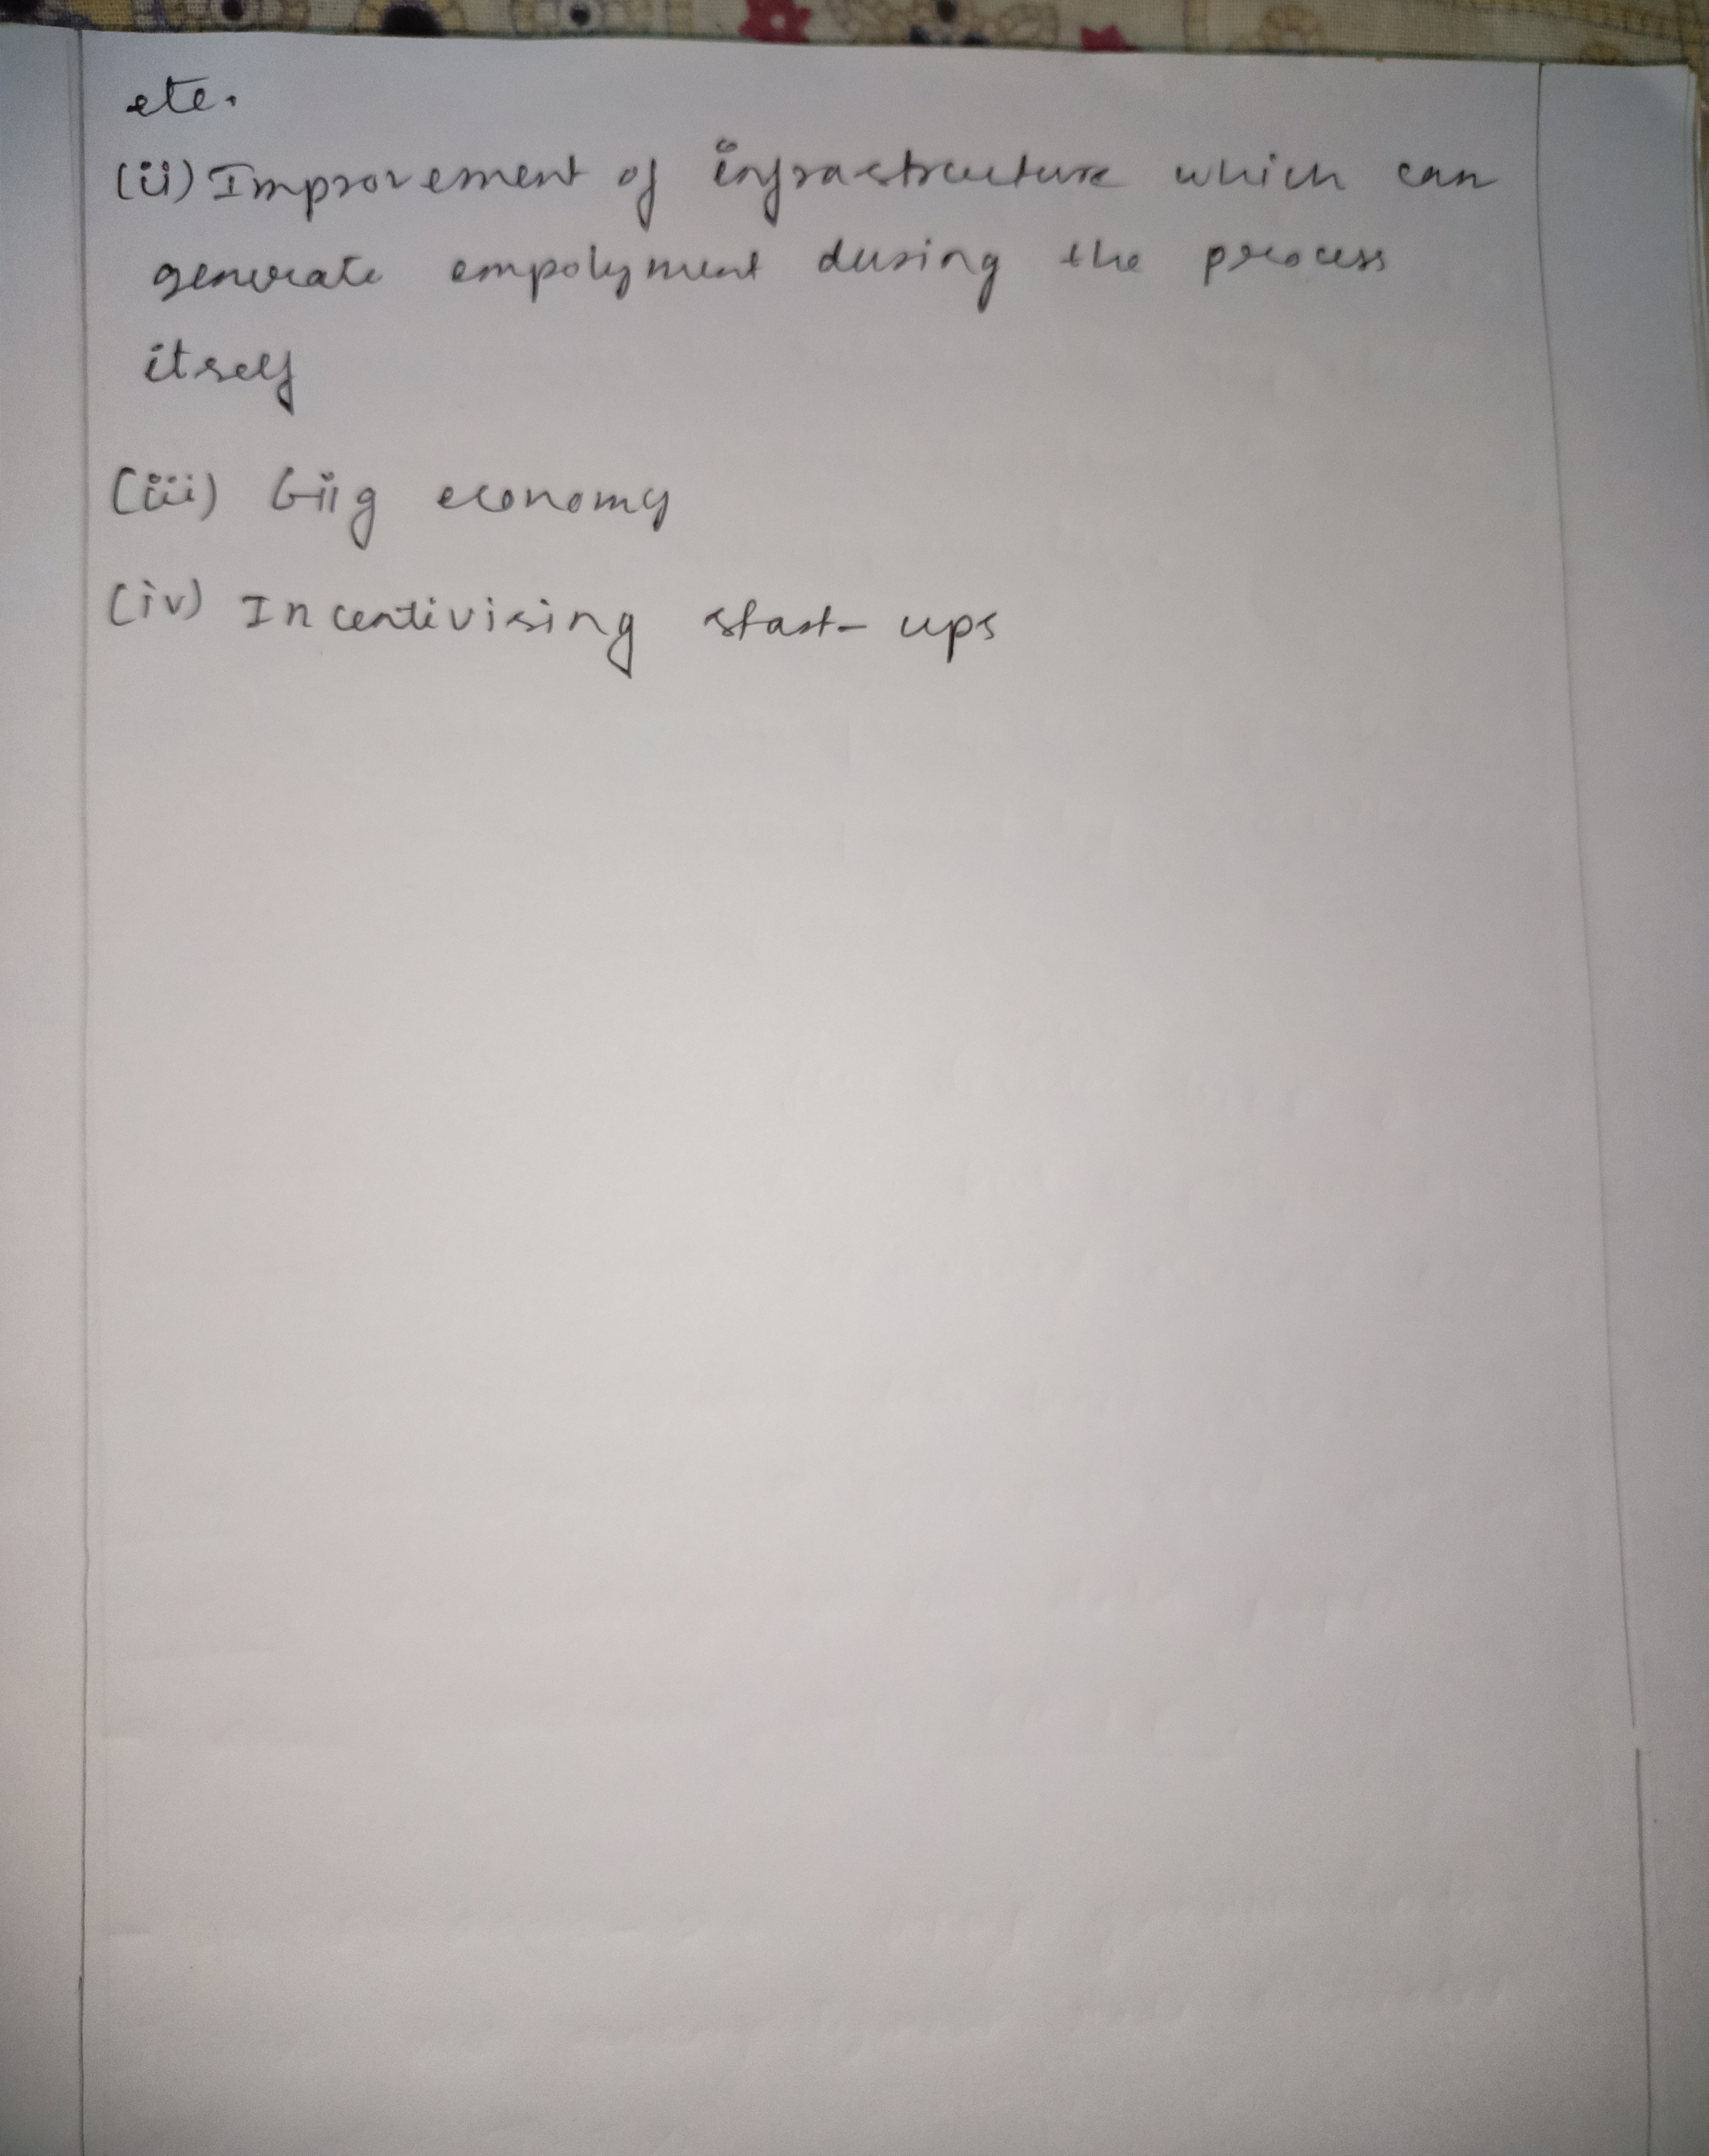 etc.
(ii) Improvement of infrastructure which can
generate empolyment during the process
itself
(iii) Giig economy
(iv) Incentivising start-ups